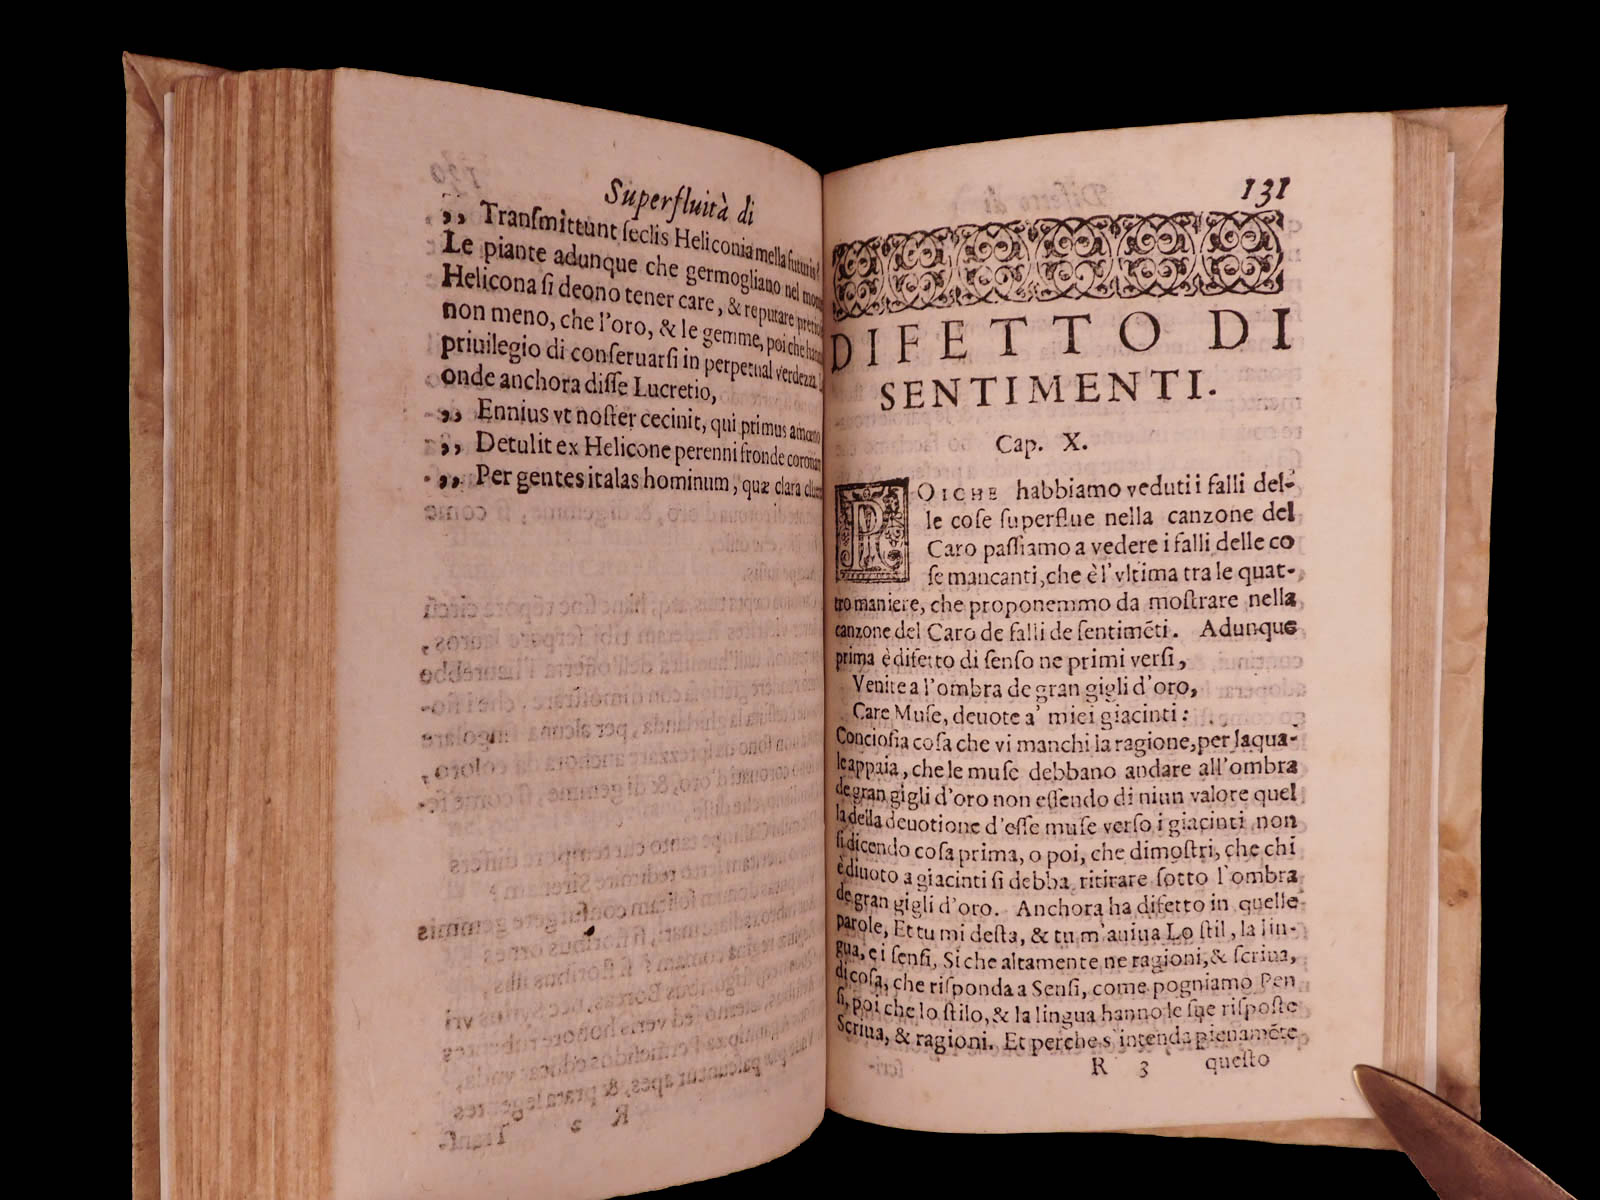 Superfluità di
,, Tranſmittunt ſeclis Heliconia mella futuris?
Le piante adunque che germogliano nel
Helicona ſi deono tener care, & reputare
non meno, che l'oro, & le gemme, poi che
priuilegio di conſeruarſi in perpetual verdezza
onde anchora diſſe Lucretio,
,, Ennius vt noſter cecinit, qui primus amœno
,, Detulit ex Helicone perenni fronde
,, Per gentes italas hominum, quæ clara
131
DIFETTO DI
SENTIMENTI.
Cap. X.
POICHE habbiamo veduti i falli del-
le coſe ſuperflue nella canzone del
Caro paſſiamo a vedere i falli delle co
ſe mancanti, che è l'vltima tra le quat-
tro maniere, che proponemmo da moſtrare nella
canzone del Caro de falli de ſentimēti. Adunque
prima è difetto di ſenſo ne primi verſi,
Venite a l'ombra de gran gigli d'oro,
Care Muſe, deuote a' miei giacinti:
Concioſia coſa che vi manchi la ragione, per laqua-
le appaia, che le muſe debbano andare all'ombra
de gran gigli d'oro non eſſendo di niun valore quel
la della deuotione d'eſſe muſe verſo i giacinti non
ſi dicendo coſa prima, o poi, che dimoſtri, che chi
è diuoto a giacinti ſi debba ritirare ſotto l'ombra
de gran gigli d'oro. Anchora ha difetto in quelle
parole, Et tu mi deſta, & tu m'auiua Lo ſtil, la lin-
gua, e i ſenſi, Si che altamente ne ragioni, & ſcriua,
di coſa, che riſponda a Senſi, come pogniamo Pen
ſi, poi che lo ſtilo, & la lingua hanno le ſue riſpoſte
Scriua, & ragioni. Et perche s'intenda pienamēte
R 3 queſto